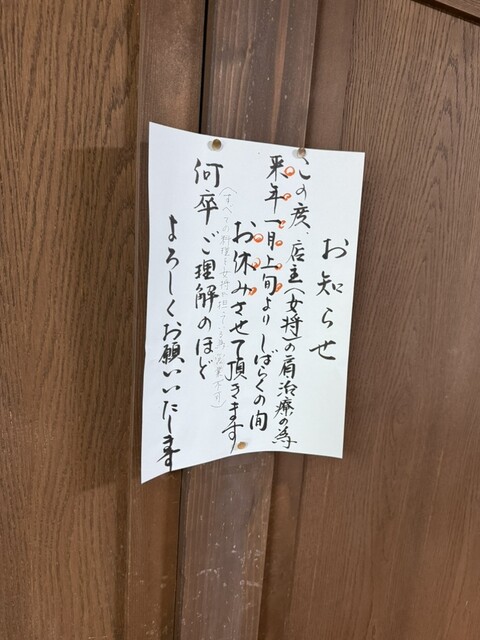 お知らせ
この度、店主(女将)の肩治療の為
来年一月上旬よりしばらくの間
お休みさせて頂きます
(すべての料理を女将が担っている為、営業不可)
何卒ご理解のほど
よろしくお願いいたします